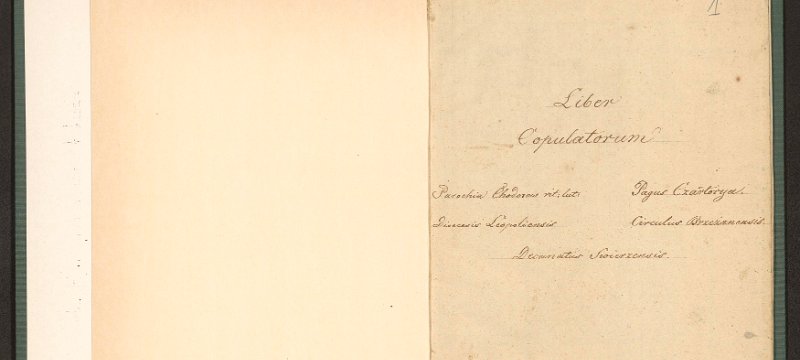 1
Liber
Copulatorum
Parochia Chodorow rit: lat: Pagus Czartorya.
Dioecesis Leopoliensis Circulus Brzezanensis.
Decanatus Swierzensis.